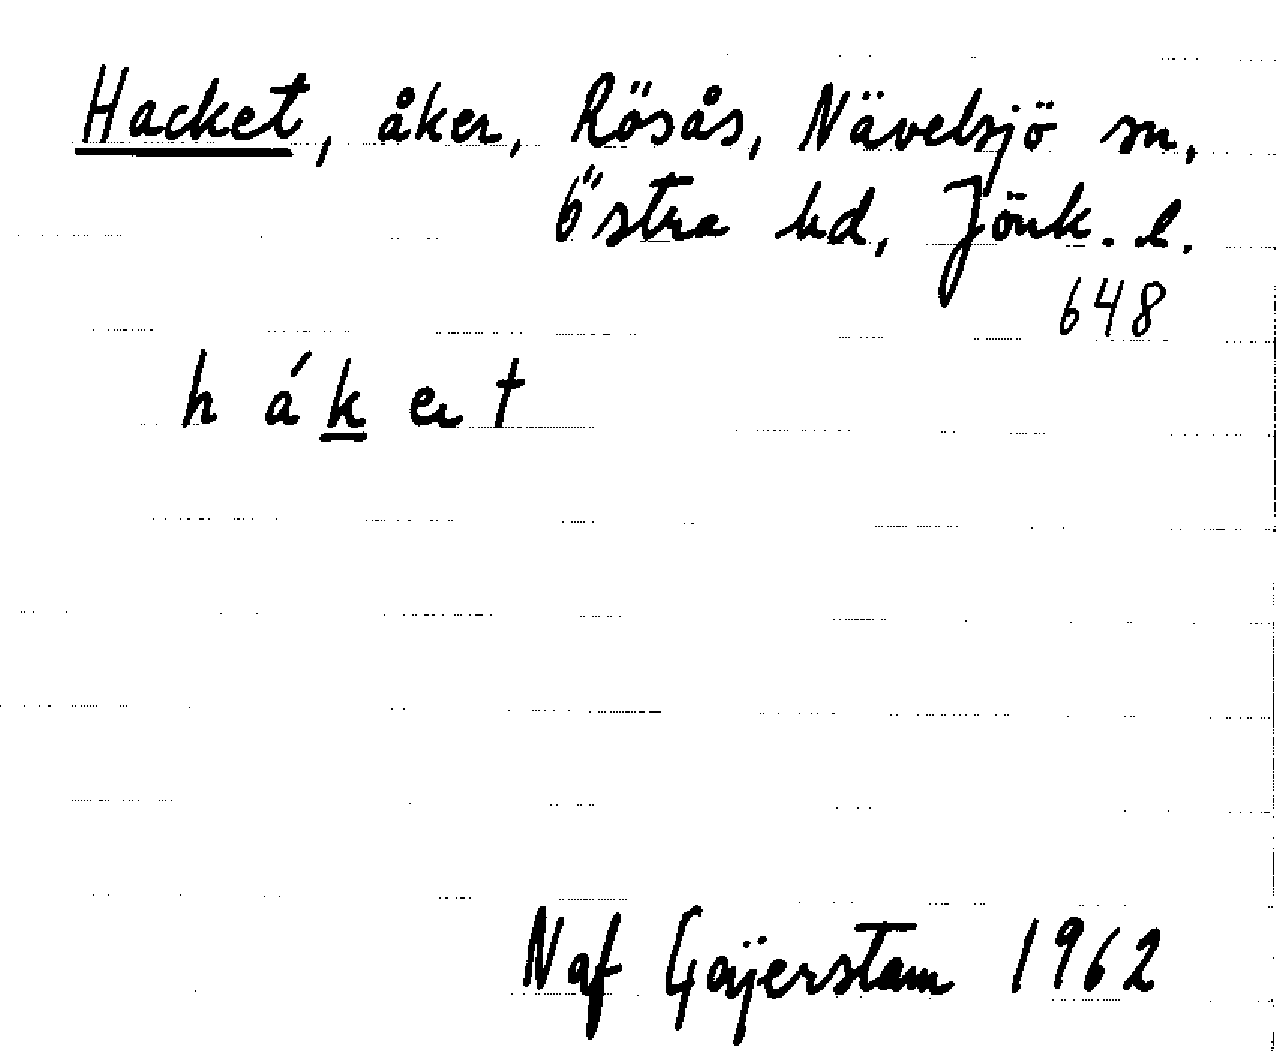 Hacket, åker, Rösås, Nävelsjö sn,
Östra hd, Jönk. l.
648
h á k e t
Naf Gejerstam 1962